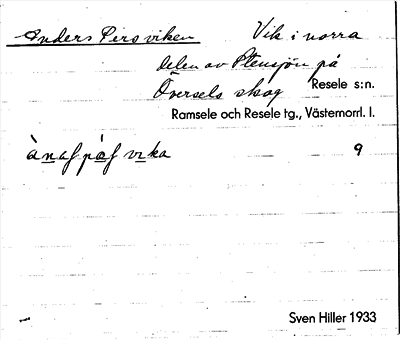 Anders Persviken Vik i norra
delen av Plensjön på
Översels skog Resele s:n.
Ramsele och Resele tg., Västernorrl. l.
vika 9
Sven Hiller 1933